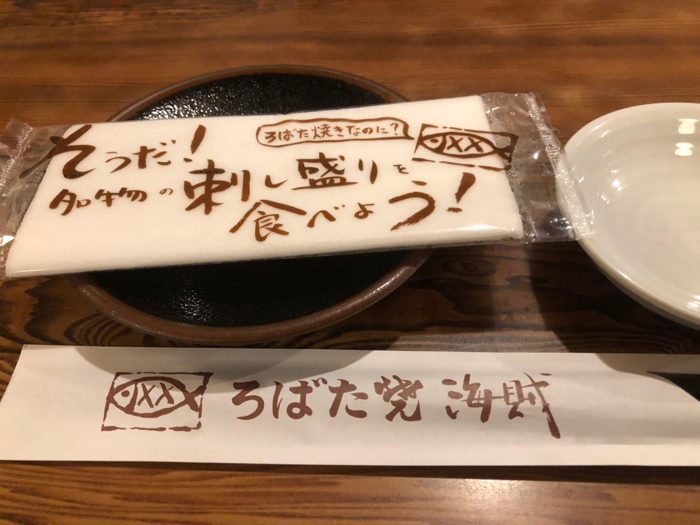 そうだ!
ろばた焼きなのに?
名物の刺し盛りを
食べよう!
ろばた焼 海賊